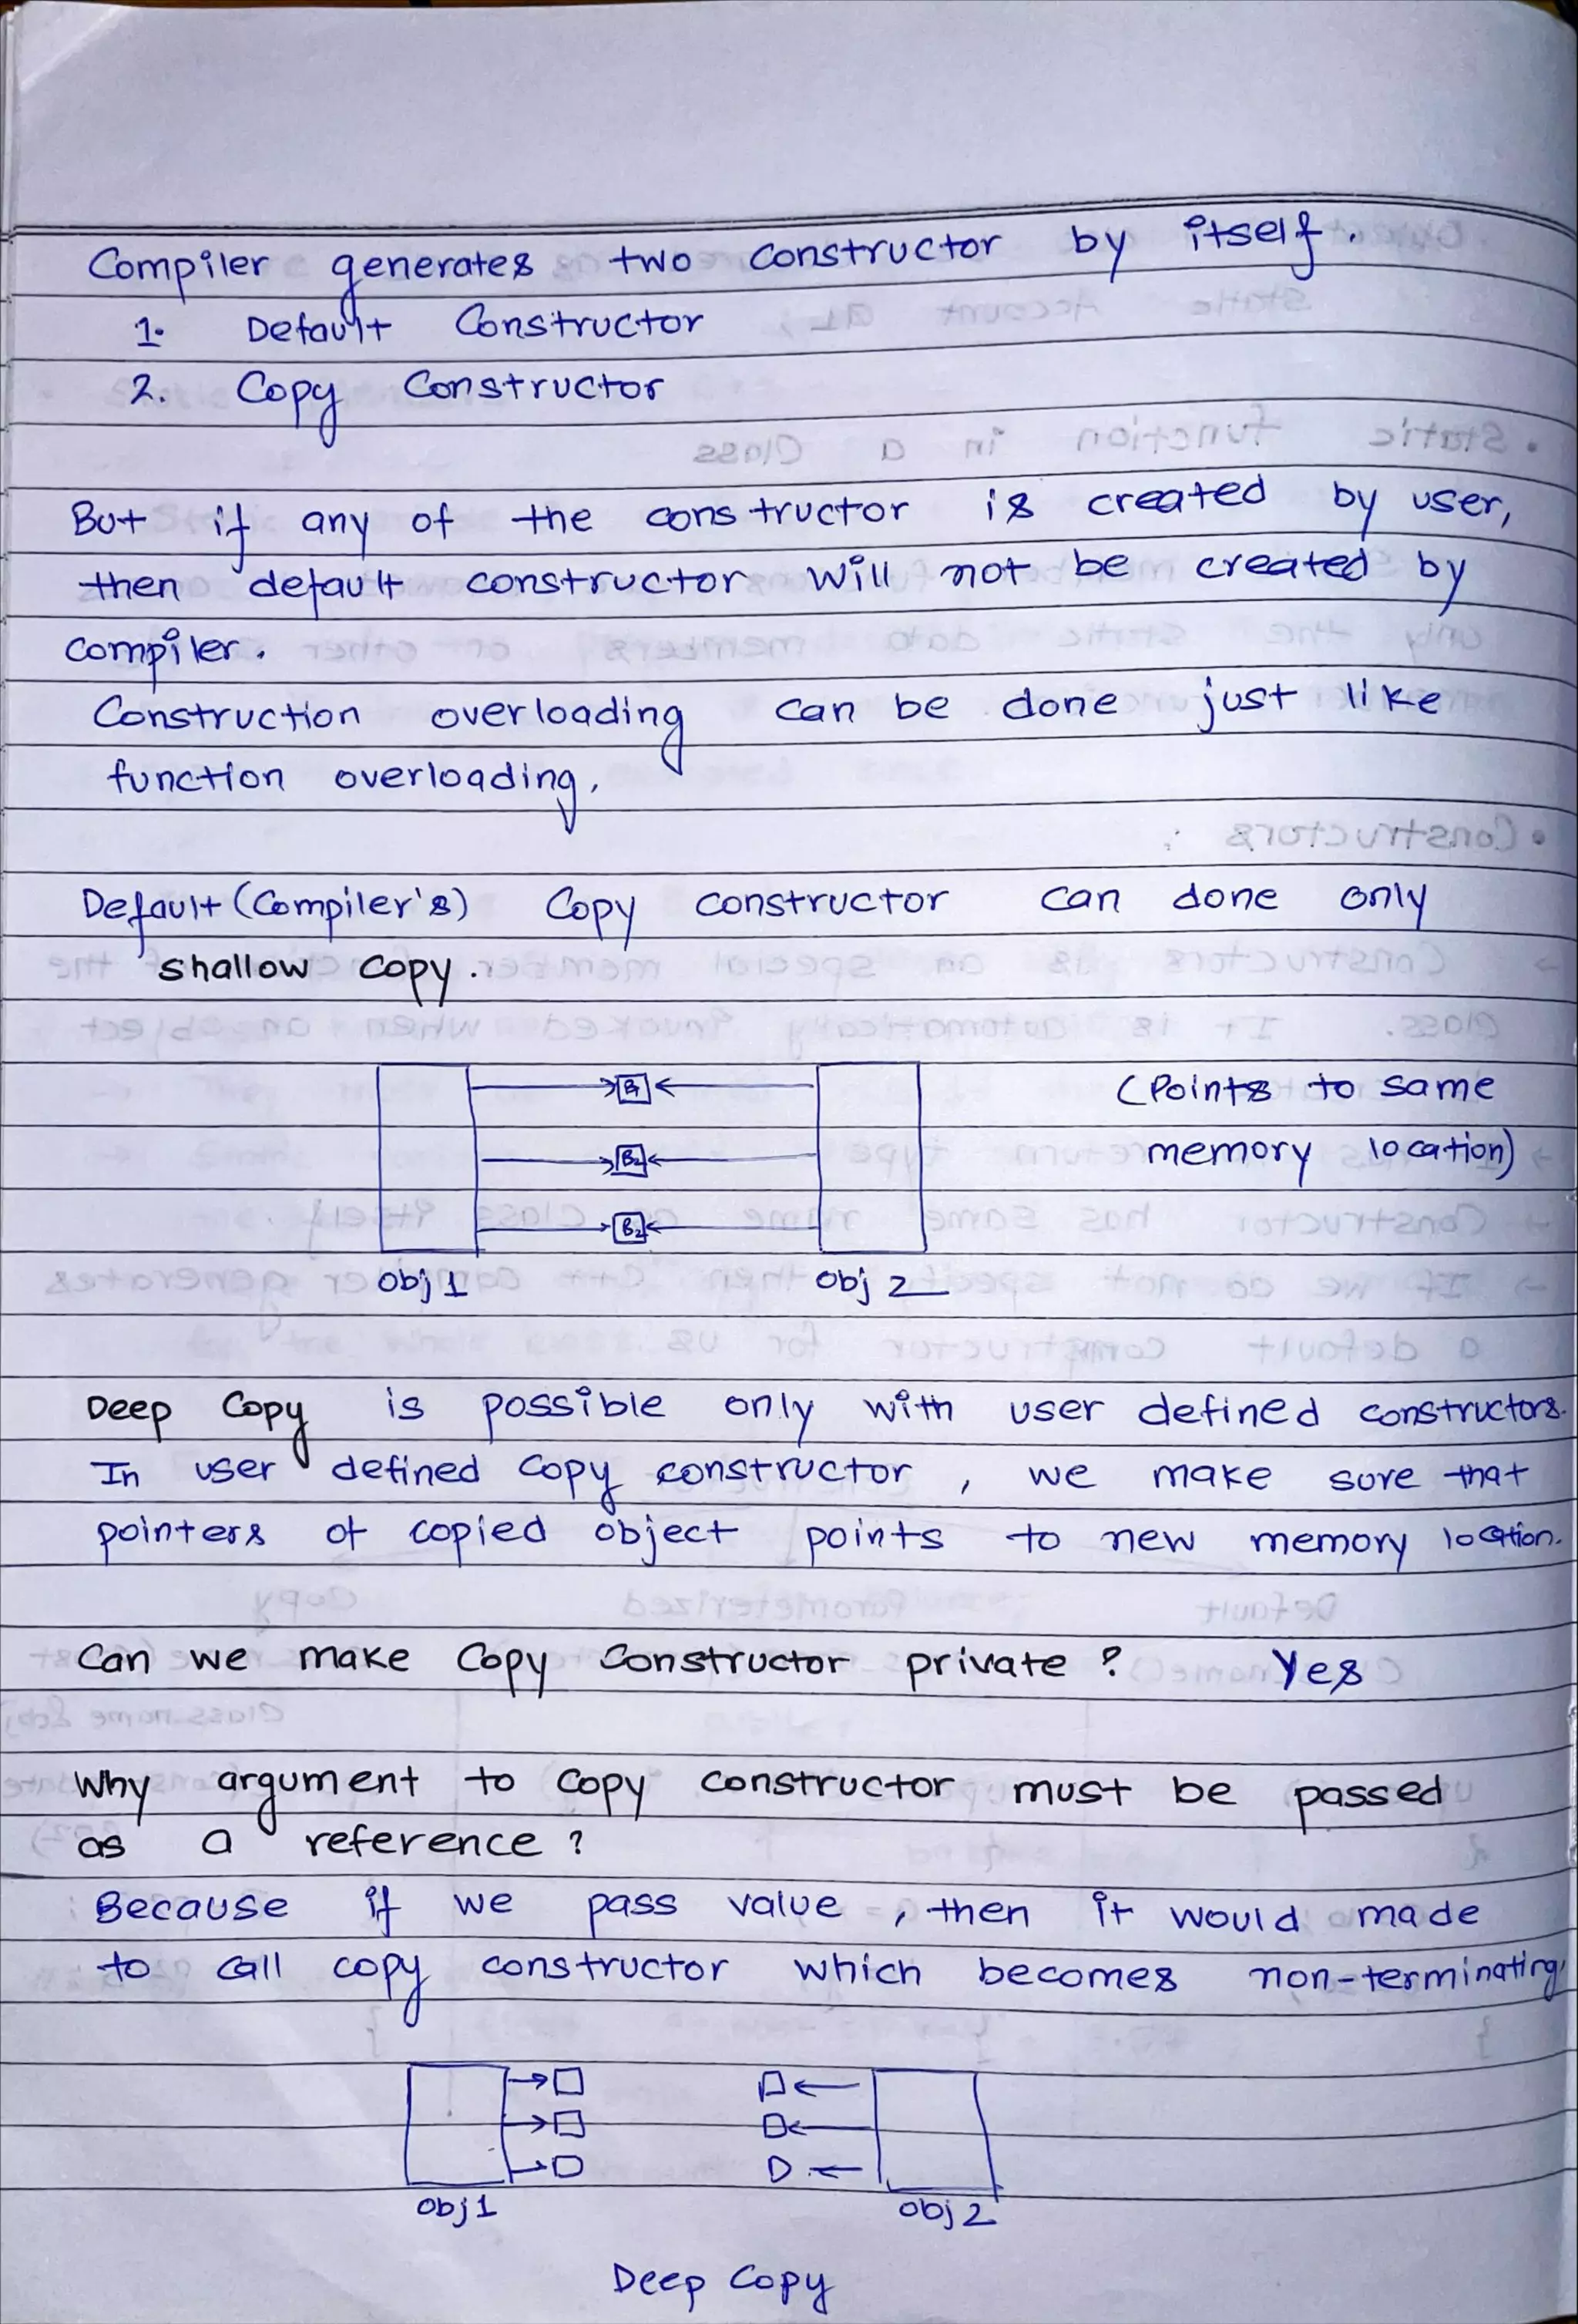 Compiler generates two constructor by itself.
1. Default Constructor
2. Copy Constructor
But if any of the constructor is created by user,
then default constructor will not be created by
compiler.
Construction overloading can be done just like
function overloading.
Default (Compiler's) Copy constructor can done only
shallow copy.
B1
(Points to same
B2
memory location)
B2
Obj 1 Obj 2
Deep Copy is possible only with user defined constructors.
In user defined copy constructor, we make sure that
pointers of copied object points to new memory location.
Can we make Copy Constructor private? Yes
Why argument to copy constructor must be passed
as a reference?
Because if we pass value, then it would made
to call copy constructor which becomes non-terminating
Obj 1 Obj 2
Deep Copy